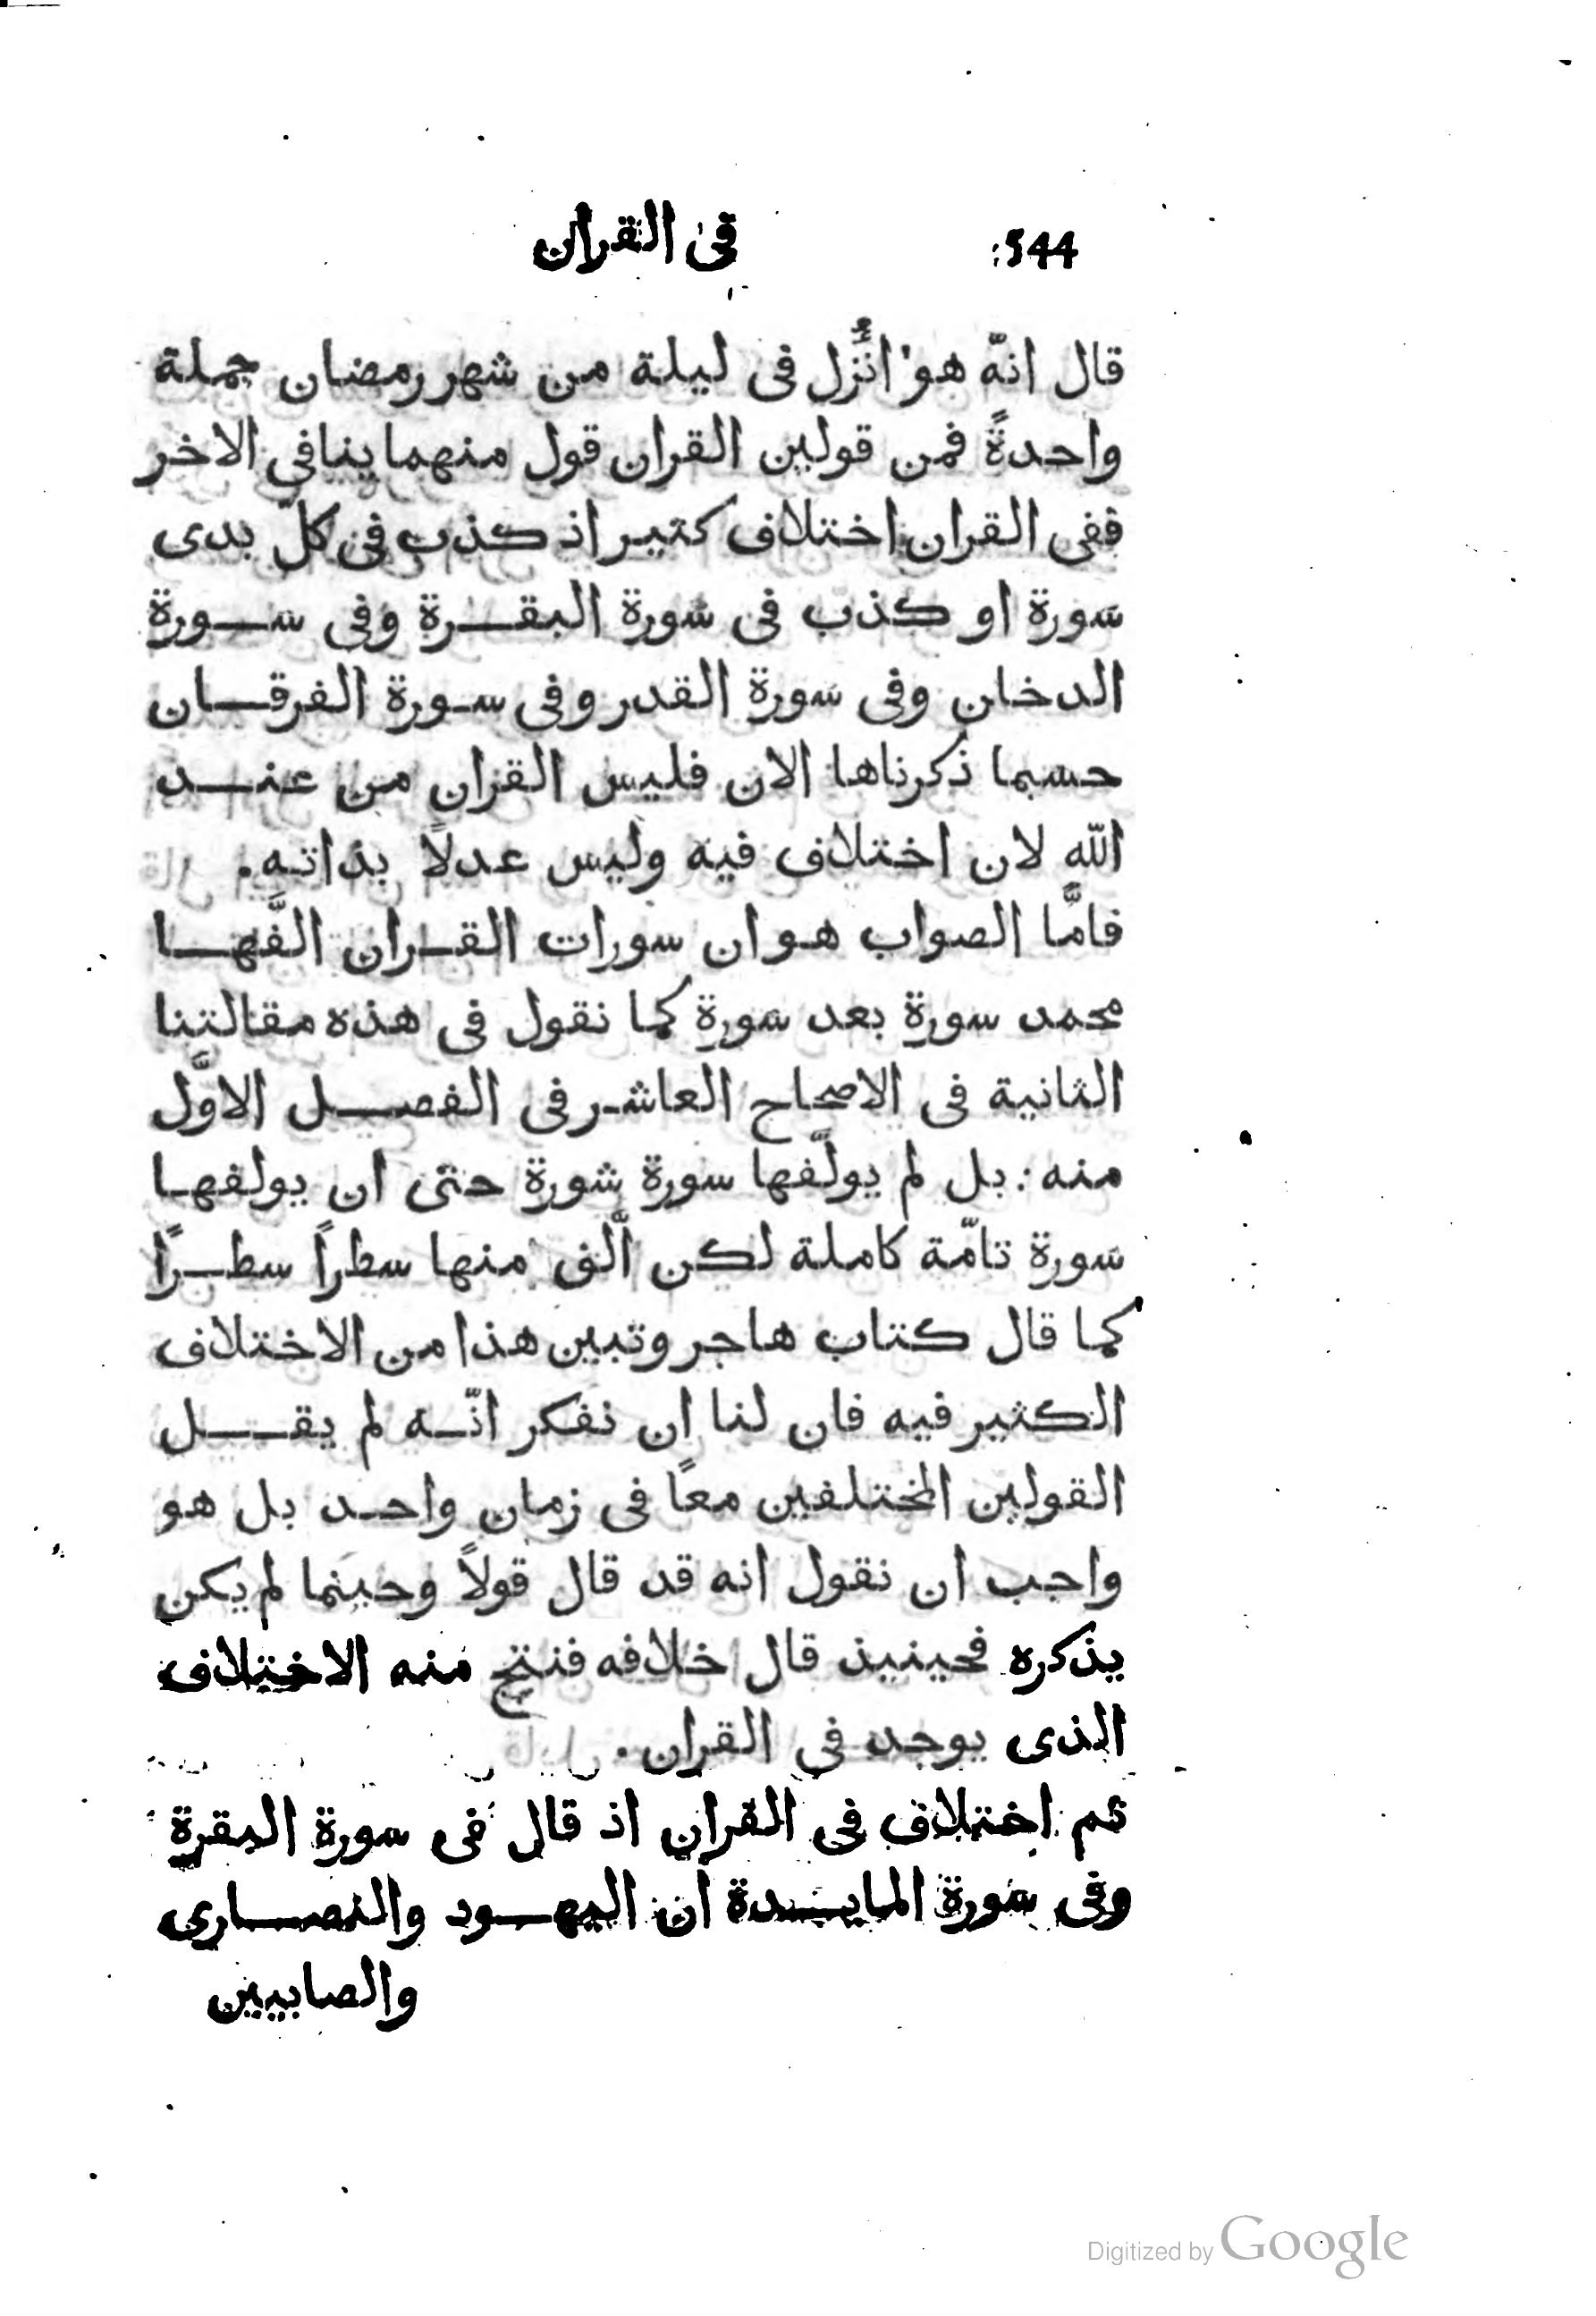 544 في القران
قال انّه هو اُنزّل في ليلة من شهر رمضان جملة
واحدةً فمن قولين القران قول منهما ينافي الاخر
ففي القران اختلاف كتير اذ كذب في كلّ بدى
سورة او كذب في سورة البقـرة وفي سـورة
الدخان وفي سورة القدر وفي سورة الفرقـان
حسبما ذكرناها الان فليس القران من عنـد
اللّه لان اختلاف فيه وليس عدلاً بذاته.
فامَّا الصواب هو ان سورات القـران الَّفهـا
محمد سورة بعد سورة كما نقول في هذه مقالتنا
الثانية في الاصحاح العاشر في الفصـل الاوَّل
منه: بل لم يولّفها سورة سورة حتى ان يولفها
سورة تامّة كاملة لكن الّف منها سطراً سطـراً
كما قال كتاب هاجر وتبين هذا من الاختلاف
الكثير فيه فان لنا ان نفكر انّـه لم يقـل
القولين المختلفين معاً في زمان واحد بل هو
واجب ان نقول انه قد قال قولاً وحينما لم يكن
يذكره فحينيذ قال خلافه فنتج منه الاختلاف
الذى يوجد في القران.
ثم اختلاف في القران اذ قال في سورة البقرة
وفي سورة المايـدة ان اليهـود والنصـارى
والصابيين
Digitized by Google